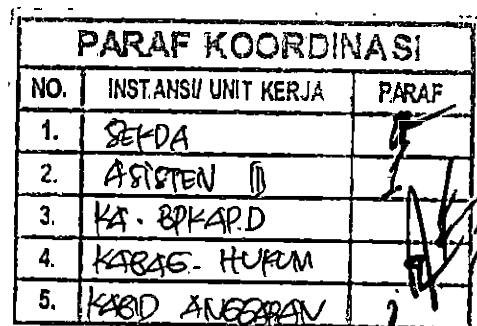 PARAF KOORDINASI
NO. INSTANSI/ UNIT KERJA PARAF
1. SEKDA
2. ASISTEN II
3. KA. BPKAP.D
4. KABAG. HUKUM
5. KABID ANGGARAN